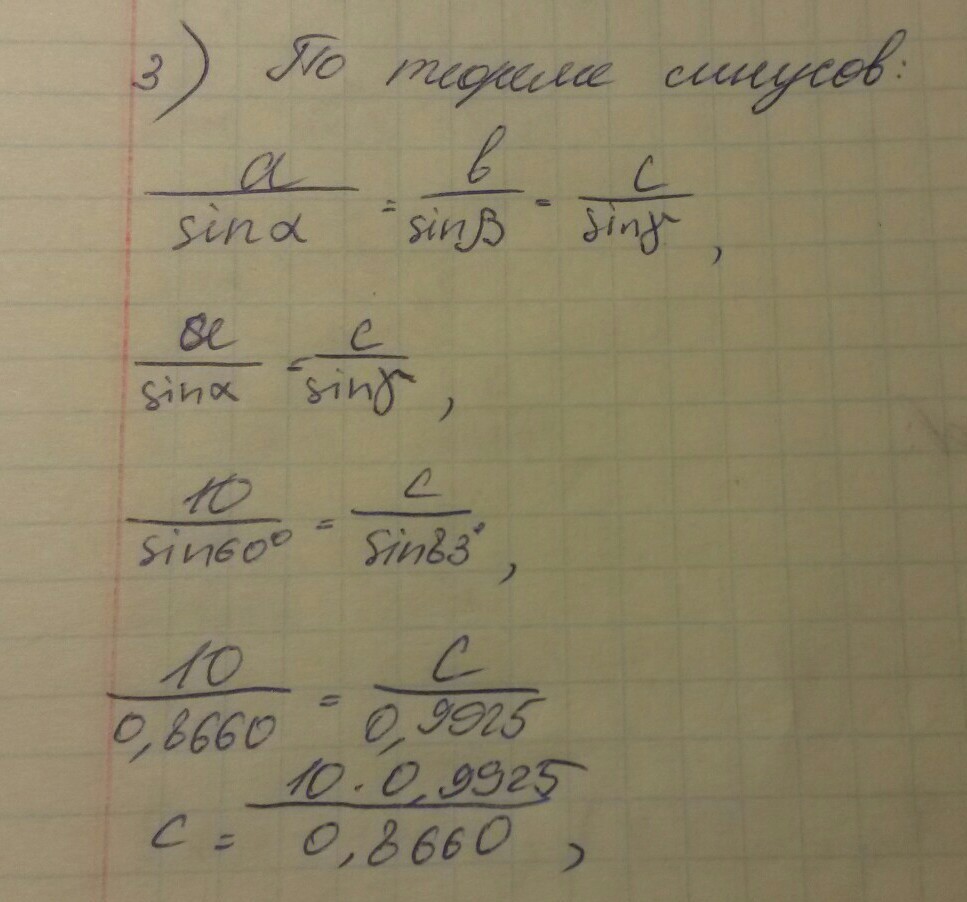 3) По теореме синусов:
a/sinα = b/sinβ = c/sinγ,
a/sinα = c/sinγ,
10/sin60° = c/sin83°,
10/0,8660 = c/0,9925
c = 10·0,9925/0,8660,